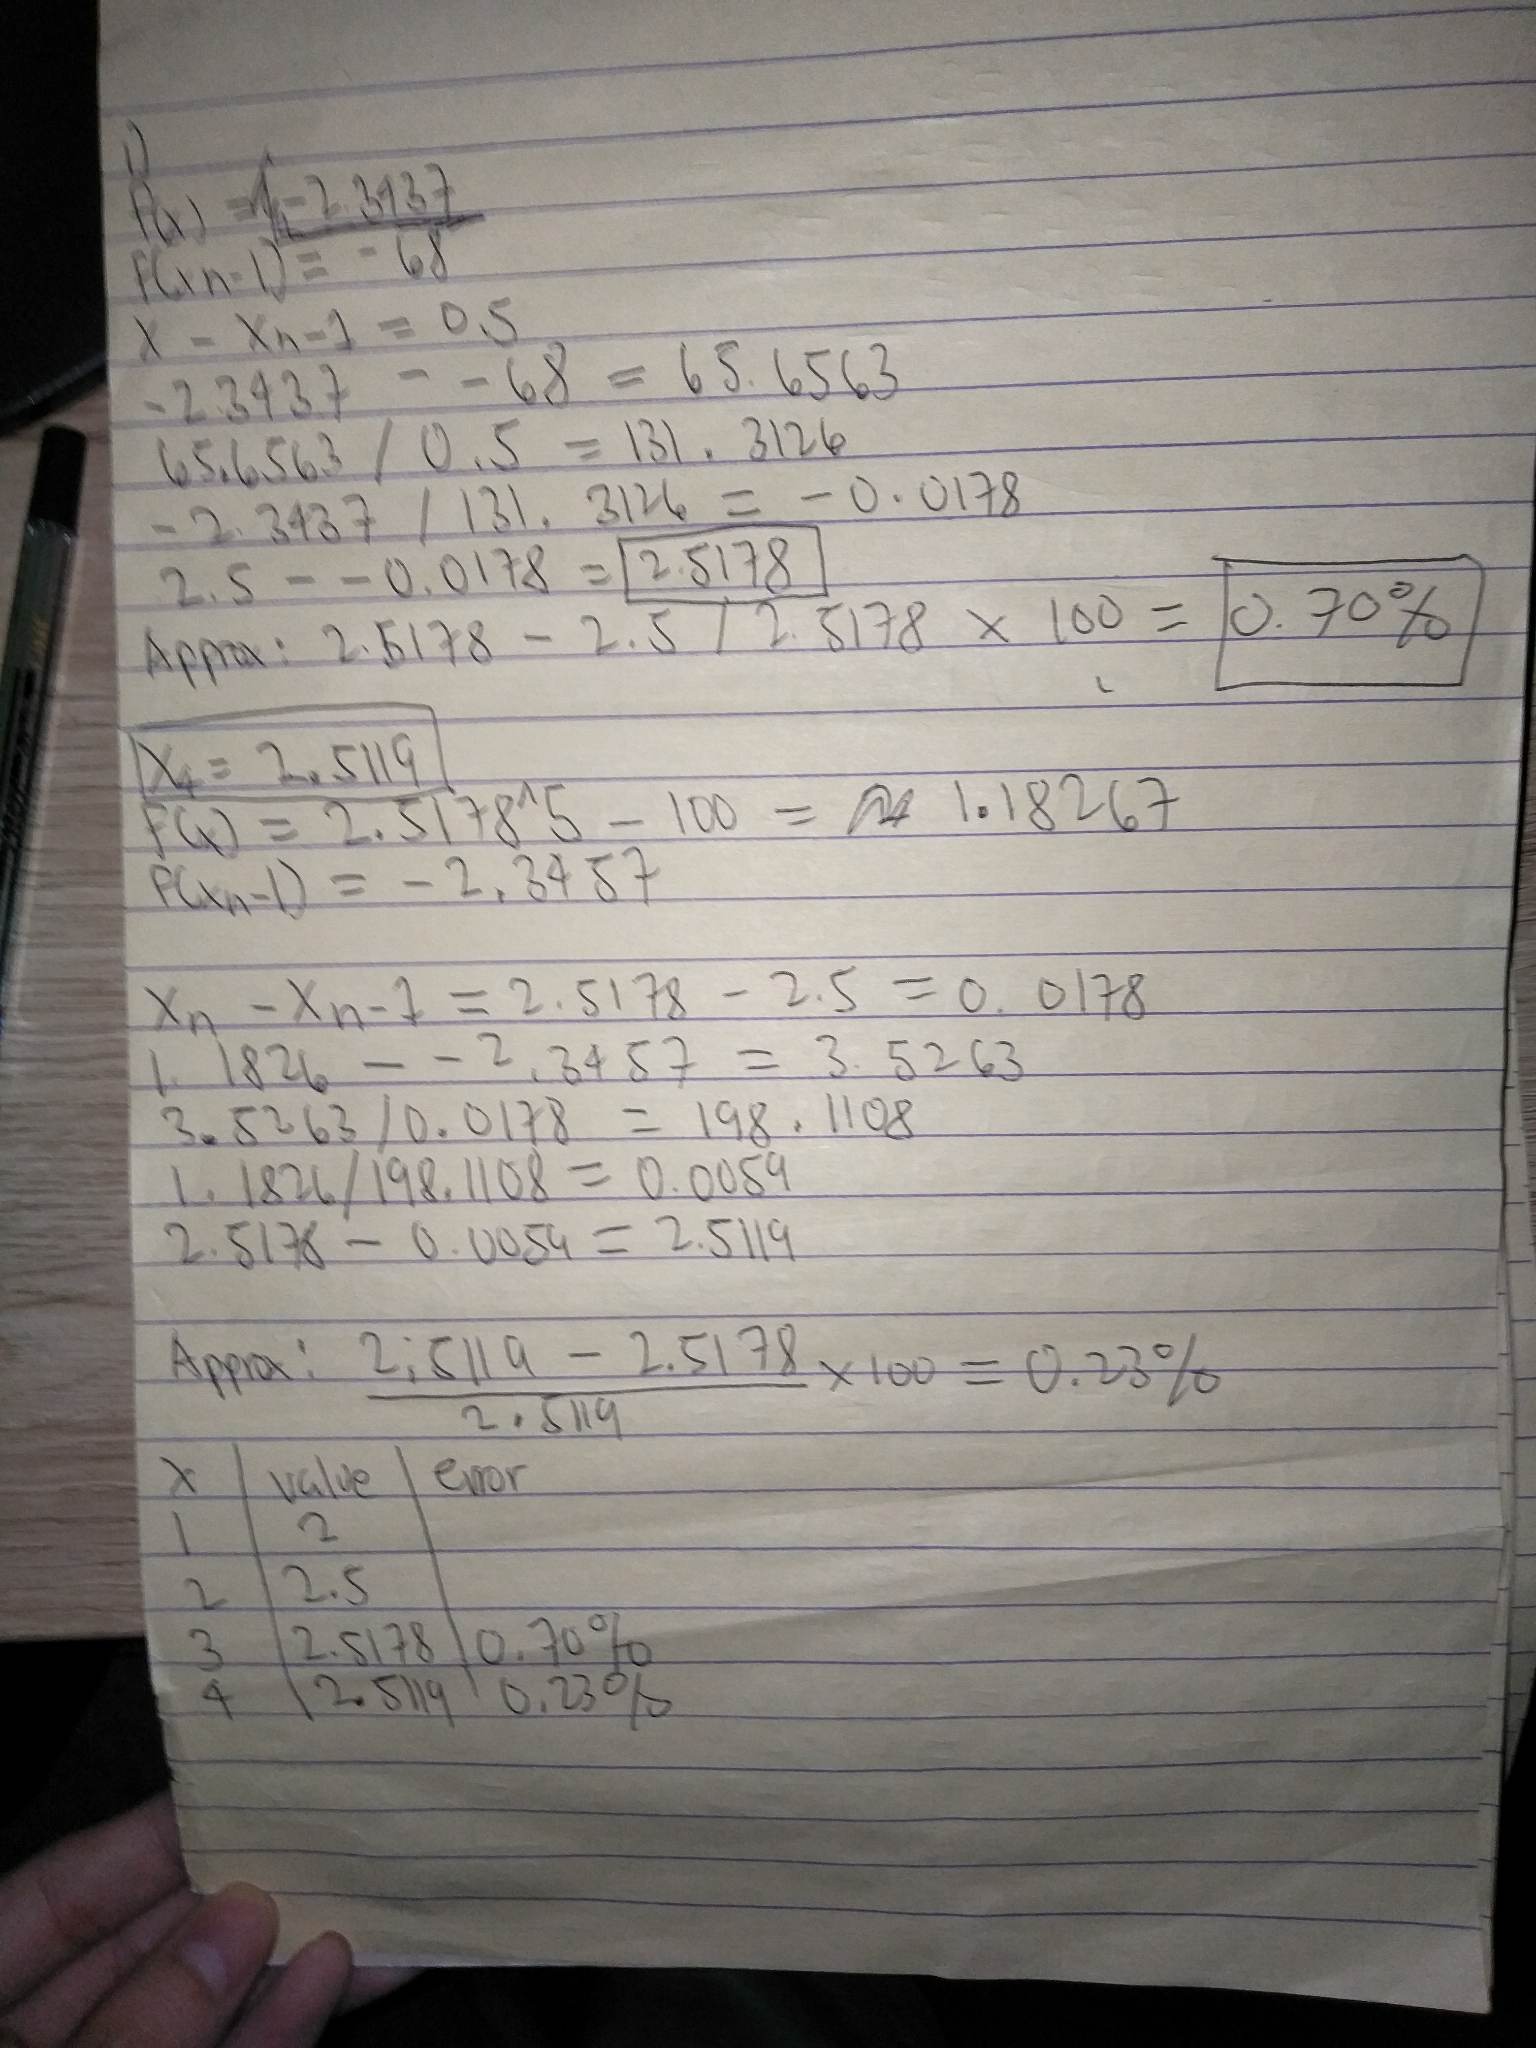 1)
f(x) = -2.3437
f(xn-1) = -68
x - xn-1 = 0.5
-2.3437 - -68 = 65.6563
65.6563 / 0.5 = 131.3126
-2.3437 / 131.3126 = -0.0178
2.5 - -0.0178 = 2.5178
Approx: 2.5178 - 2.5 / 2.5178 x 100 = 0.70%
X4 = 2.5119
f(x) = 2.5178^5 - 100 = 1.18267
f(xn-1) = -2.3457
xn - xn-1 = 2.5178 - 2.5 = 0.0178
1.1826 - -2.3457 = 3.5263
3.5263/0.0178 = 198.1108
1.1826/198.1108 = 0.0059
2.5178 - 0.0059 = 2.5119
Approx: 2.5119 - 2.5178 x 100 = 0.23%
2.5119
x value error
1 2
2 2.5
3 2.5178 0.70%
4 2.5119 0.23%